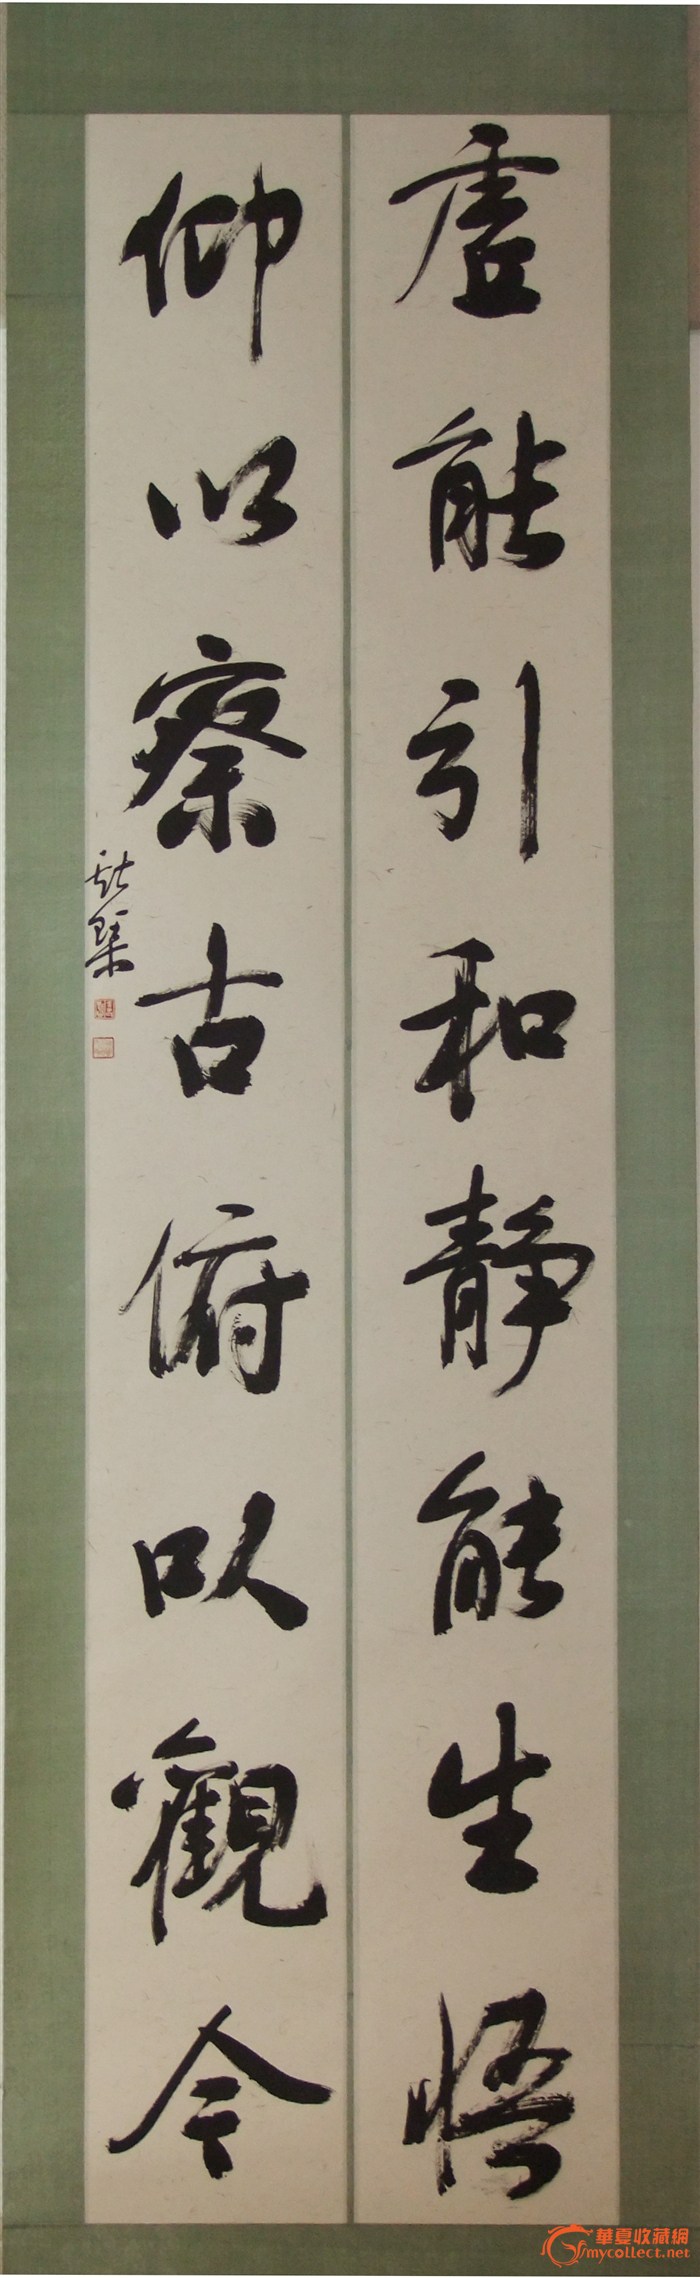 虚能引和静能生悟
仰以察古俯以觀今
華夏收藏網
mycollect.net